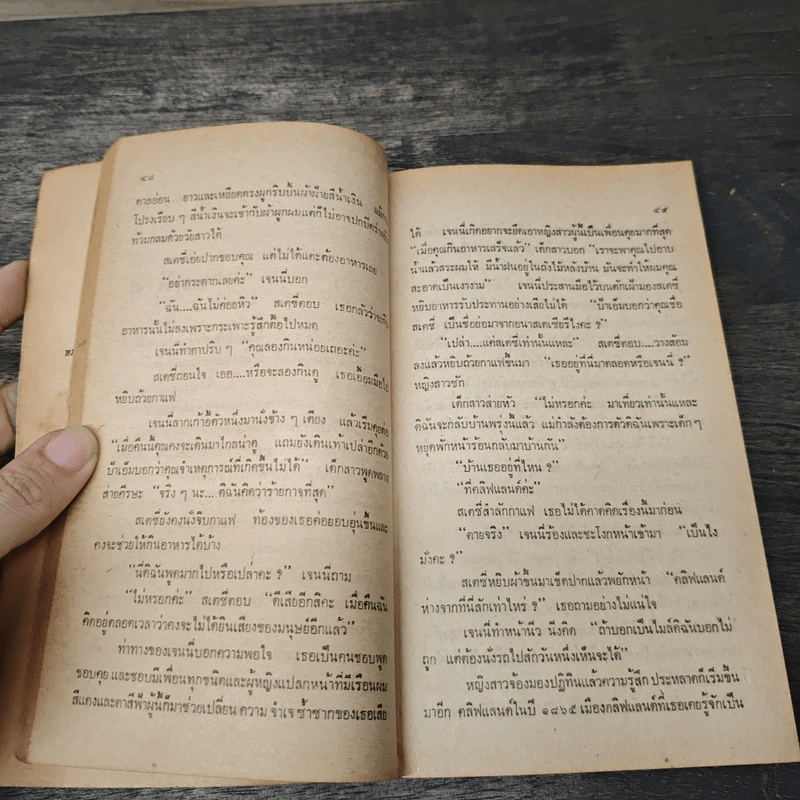 ๔๘
ตาลอ่อน ยาวและเหยียดตรงผูกริบบิ้นผ้าฝ้ายสีน้ำเงิน
โปรงเรียบ ๆ สีน้ำเงินจะเข้ากับผ้าผูกผมแต่ก็ไม่อาจปกปิด
ท้วมกลมด้วยวัยสาวได้
สเตซี่เอ่ยปากขอบคุณ แต่ไม่ได้แตะต้องอาหารเลย
“อย่ากระดากเลยค่ะ” เจนนี่บอก
“ฉัน....ฉันไม่ค่อยหิว” สเตซี่ตอบ เธอกลัวว่าจะกิน
อาหารนั้นไม่ลงเพราะกระเพาะรู้สึกตื้อไปหมด
เจนนี่ทำตาปริบ ๆ “คุณลองกินหน่อยเถอะค่ะ”
สเตซี่ถอนใจ เออ....หรือจะลองกินดู เธอเอื้อมมือไป
หยิบถ้วยกาแฟ
เจนนี่ลากเก้าอี้ตัวหนึ่งมานั่งข้าง ๆ เตียง แล้วเริ่มคุยต่อ
“เมื่อคืนนี้คุณคงจะเดินมาไกลน่าดู แถมยังเดินเท้าเปล่าอีกด้วย
ป้าเอ็มบอกว่าคุณจำเหตุการณ์ที่เกิดขึ้นไม่ได้” เด็กสาวพูดพลาง
ส่ายศีรษะ “จริง ๆ นะ...ดิฉันคิดว่าร้ายกาจที่สุด”
สเตซี่ยังคงนั่งจิบกาแฟ ท้องของเธอค่อยอบอุ่นขึ้นและ
คงจะช่วยให้กินอาหารได้บ้าง
“นี่ดิฉันพูดมากไปหรือเปล่าคะ ?” เจนนี่ถาม
“ไม่หรอกค่ะ” สเตซี่ตอบ “ดีเสียอีกสิคะ เมื่อคืนฉัน
คิดอยู่ตลอดเวลาว่าคงจะไม่ได้ยินเสียงของมนุษย์อีกแล้ว”
ท่าทางของเจนนี่บอกความพอใจ เธอเป็นคนชอบพูด
ชอบคุย และชอบมีเพื่อนทุกชนิดและผู้หญิงแปลกหน้าที่มีเรือนผม
สีแดงและตาสีฟ้าผู้นี้ก็มาช่วยเปลี่ยน ความ จำเจ ซ้ำซากของเธอเสีย
๔๙
ได้ เจนนี่เกิดอยากจะยึดเอาหญิงสาวผู้นี้เป็นเพื่อนคุยมากที่สุด
“เมื่อคุณกินอาหารเสร็จแล้ว” เด็กสาวบอก “เราจะพาคุณไปอาบ
น้ำแล้วสระผมให้ มีน้ำฝนอยู่ในถังไม้หลังบ้าน มันจะทำให้ผมคุณ
สะอาดเป็นเงางาม” เจนนี่ประสานมือไว้บนตักเฝ้ามองสเตซี่
หยิบอาหารรับประทานอย่างเสียไม่ได้ “ป้าเอ็มบอกว่าคุณชื่อ
สเตซี่ เป็นชื่อย่อมาจากอนาสเตเซียรึไงคะ ?”
“เปล่า....แค่สเตซี่เท่านั้นแหละ” สเตซี่ตอบ....วางส้อม
ลงแล้วหยิบถ้วยกาแฟขึ้นมา “เธออยู่ที่นี่มาตลอดหรือเจนนี่ ?”
หญิงสาวซัก
เด็กสาวส่ายหัว “ไม่หรอกค่ะ มาเที่ยวเท่านั้นแหละ
ดิฉันจะกลับบ้านพรุ่งนี้แล้ว แม่กำลังต้องการตัวดิฉันเพราะเด็ก ๆ
หยุดพักหน้าร้อนกลับมาบ้านกัน”
“บ้านเธออยู่ที่ไหน ?”
“ที่คลิฟแลนด์ค่ะ”
สเตซี่สำลักกาแฟ เธอไม่ได้คาดคิดเรื่องนี้มาก่อน
“ตายจริง” เจนนี่ร้องและชะโงกหน้าเข้ามา “เป็นไง
มั่งคะ ?”
สเตซี่หยิบผ้าขึ้นมาเช็ดปากแล้วพยักหน้า “คลิฟแลนด์
ห่างจากที่นี่สักเท่าไหร่ ?” เธอถามอย่างไม่แน่ใจ
เจนนี่ทำหน้านิ่ว นิ่งคิด “ถ้าบอกเป็นไมล์ดิฉันบอกไม่
ถูก แต่ต้องนั่งรถไปสักวันหนึ่งเห็นจะได้”
หญิงสาวจ้องมองปฏิทินแล้วความรู้สึก ประหลาดก็เริ่มขึ้น
มาอีก คลิฟแลนด์ในปี ๑๘๖๕ เมืองคลิฟแลนด์ที่เธอเคยรู้จักเป็น